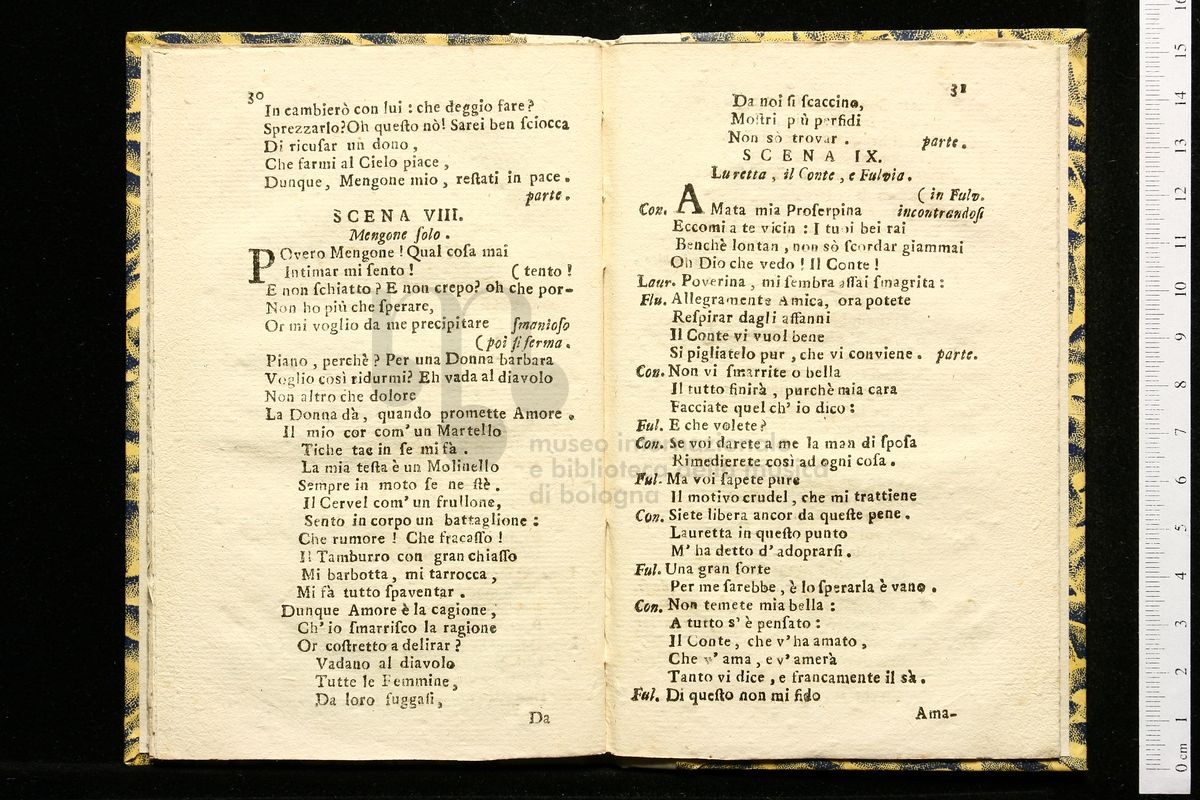 30
In cambierò con lui : che deggio fare?
Sprezzarlo?Oh queſto nò! Sarei ben ſciocca
Di ricuſar un dono ,
Che farmi al Cielo piace ,
Dunque, Mengone mio , reſtati in pace .
parte .
SCENA VIII.
Mengone ſolo .
POvero Mengone ! Qual coſa mai
Intimar mi ſento ! ( tento !
E non ſchiatto ? E non crepo? oh che por-
Non ho più che ſperare,
Or mi voglio da me precipitare ſmanioſo
( poi ſi ferma .
Piano , perchè ? Per una Donna barbara
Voglio così ridurmi? Eh vada al diavolo
Non altro che dolore
La Donna dà , quando promette Amore .
Il mio cor com' un Martello
Tiche tac in ſe mi fà .
La mia teſta è un Molinello
Sempre in moto ſe ne ſtè .
Il Cervel com' un frullone,
Sento in corpo un battaglione :
Che rumore ! Che fracaſſo !
Il Tamburro con gran chiaſſo
Mi barbotta , mi tarrocca ,
Mi fà tutto ſpaventar .
Dunque Amore è la cagione ,
Ch' io ſmarriſco la ragione
Or coſtretto a delirar ?
Vadano al diavolo
Tutte le Femmine,
Da loro fuggaſi,
Da
31
Da noi ſi ſcaccino,
Moſtri più perfidi
Non sò trovar . parte .
SCENA IX.
Luretta , il Conte , e Fulvia .
( in Fulv.
Con. AMata mia Proſerpina incontrandoſi
Eccomi a te vicin : I tuoi bei rai
Benchè lontan , non sò ſcordar giammai
Oh Dio che vedo ! Il Conte !
Laur. Poverina , mi ſembra aſſai ſmagrita :
Flu. Allegramente Amica, ora potete
Reſpirar dagli affanni
Il Conte vi vuol bene
Si pigliatelo pur , che vi conviene . parte.
Con. Non vi ſmarrite o bella
Il tutto finirà , purchè mia cara
Facciate quel ch' io dico :
Ful. E che volete ?
Con. Se voi darete a me la man di ſpoſa
Rimedierete così ad ogni coſa .
Ful. Ma voi ſapete pure
Il motivo crudel , che mi trattiene
Con. Siete libera ancor da queſte pene .
Lauretta in queſto punto
M' ha detto d' adoprarſi .
Ful. Una gran ſorte
Per me ſarebbe , è lo ſperarla è vano .
Con. Non temete mia bella :
A tutto s' è penſato :
Il Conte , che v' ha amato ,
Che v' ama , e v' amerà
Tanto vi dice , e francamente il sà .
Ful. Di queſto non mi fido
Ama-
museo internazionale
e biblioteca della musica
di bologna
0 cm 1 2 3 4 5 6 7 8 9 10 11 12 13 14 15 16